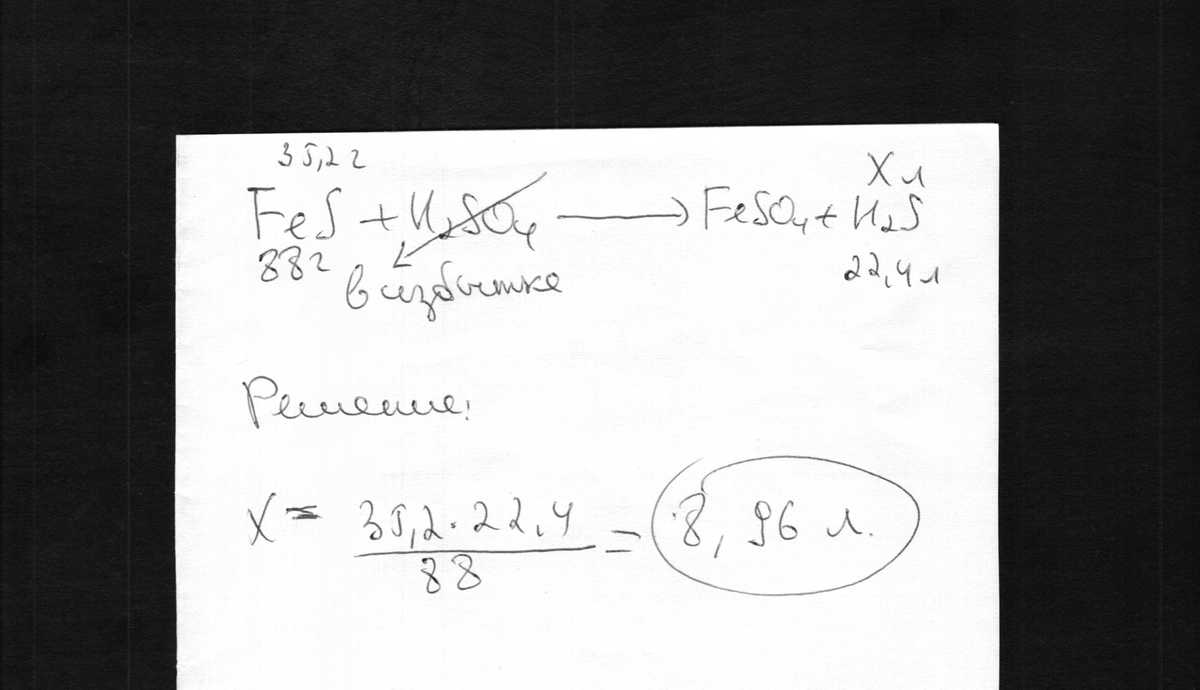 35,2 г
X л
FeS + H₂SO₄ → FeSO₄ + H₂S
88 г
в избытке
22,4 л
Решение:
X = 35,2 · 22,4 / 88 = 8,96 л.